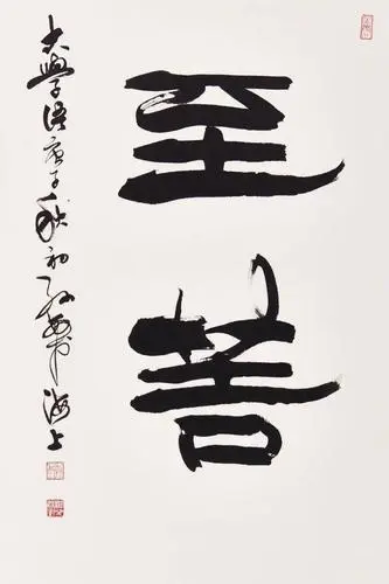 至善
大學語庚子秋初海上